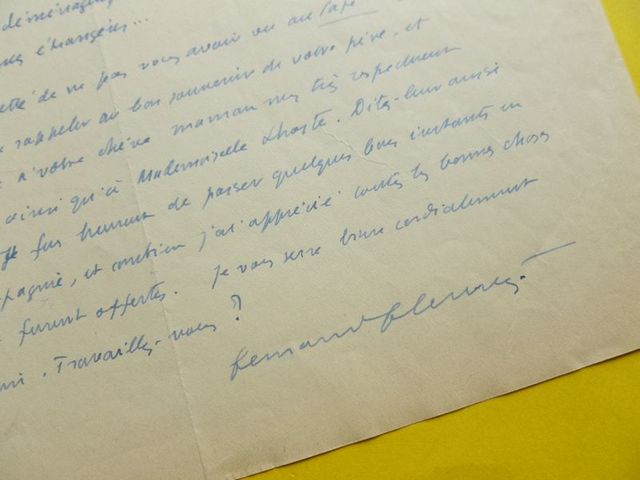 déménag
es étrangères...
de ne pas vous avoir vu au Pape
rappeler au bon souvenir de votre père, et
à votre chère maman mes très respectueux
ainsi qu'à Mademoiselle Lhoste. Dites-leur aussi
je fus heureux de passer quelques bons instants en
pagnie, et combien j'ai apprécié toutes les bonnes choses
furent offertes. Je vous serre bien cordialement
Travaillez-vous ?
Fernand Fleuret